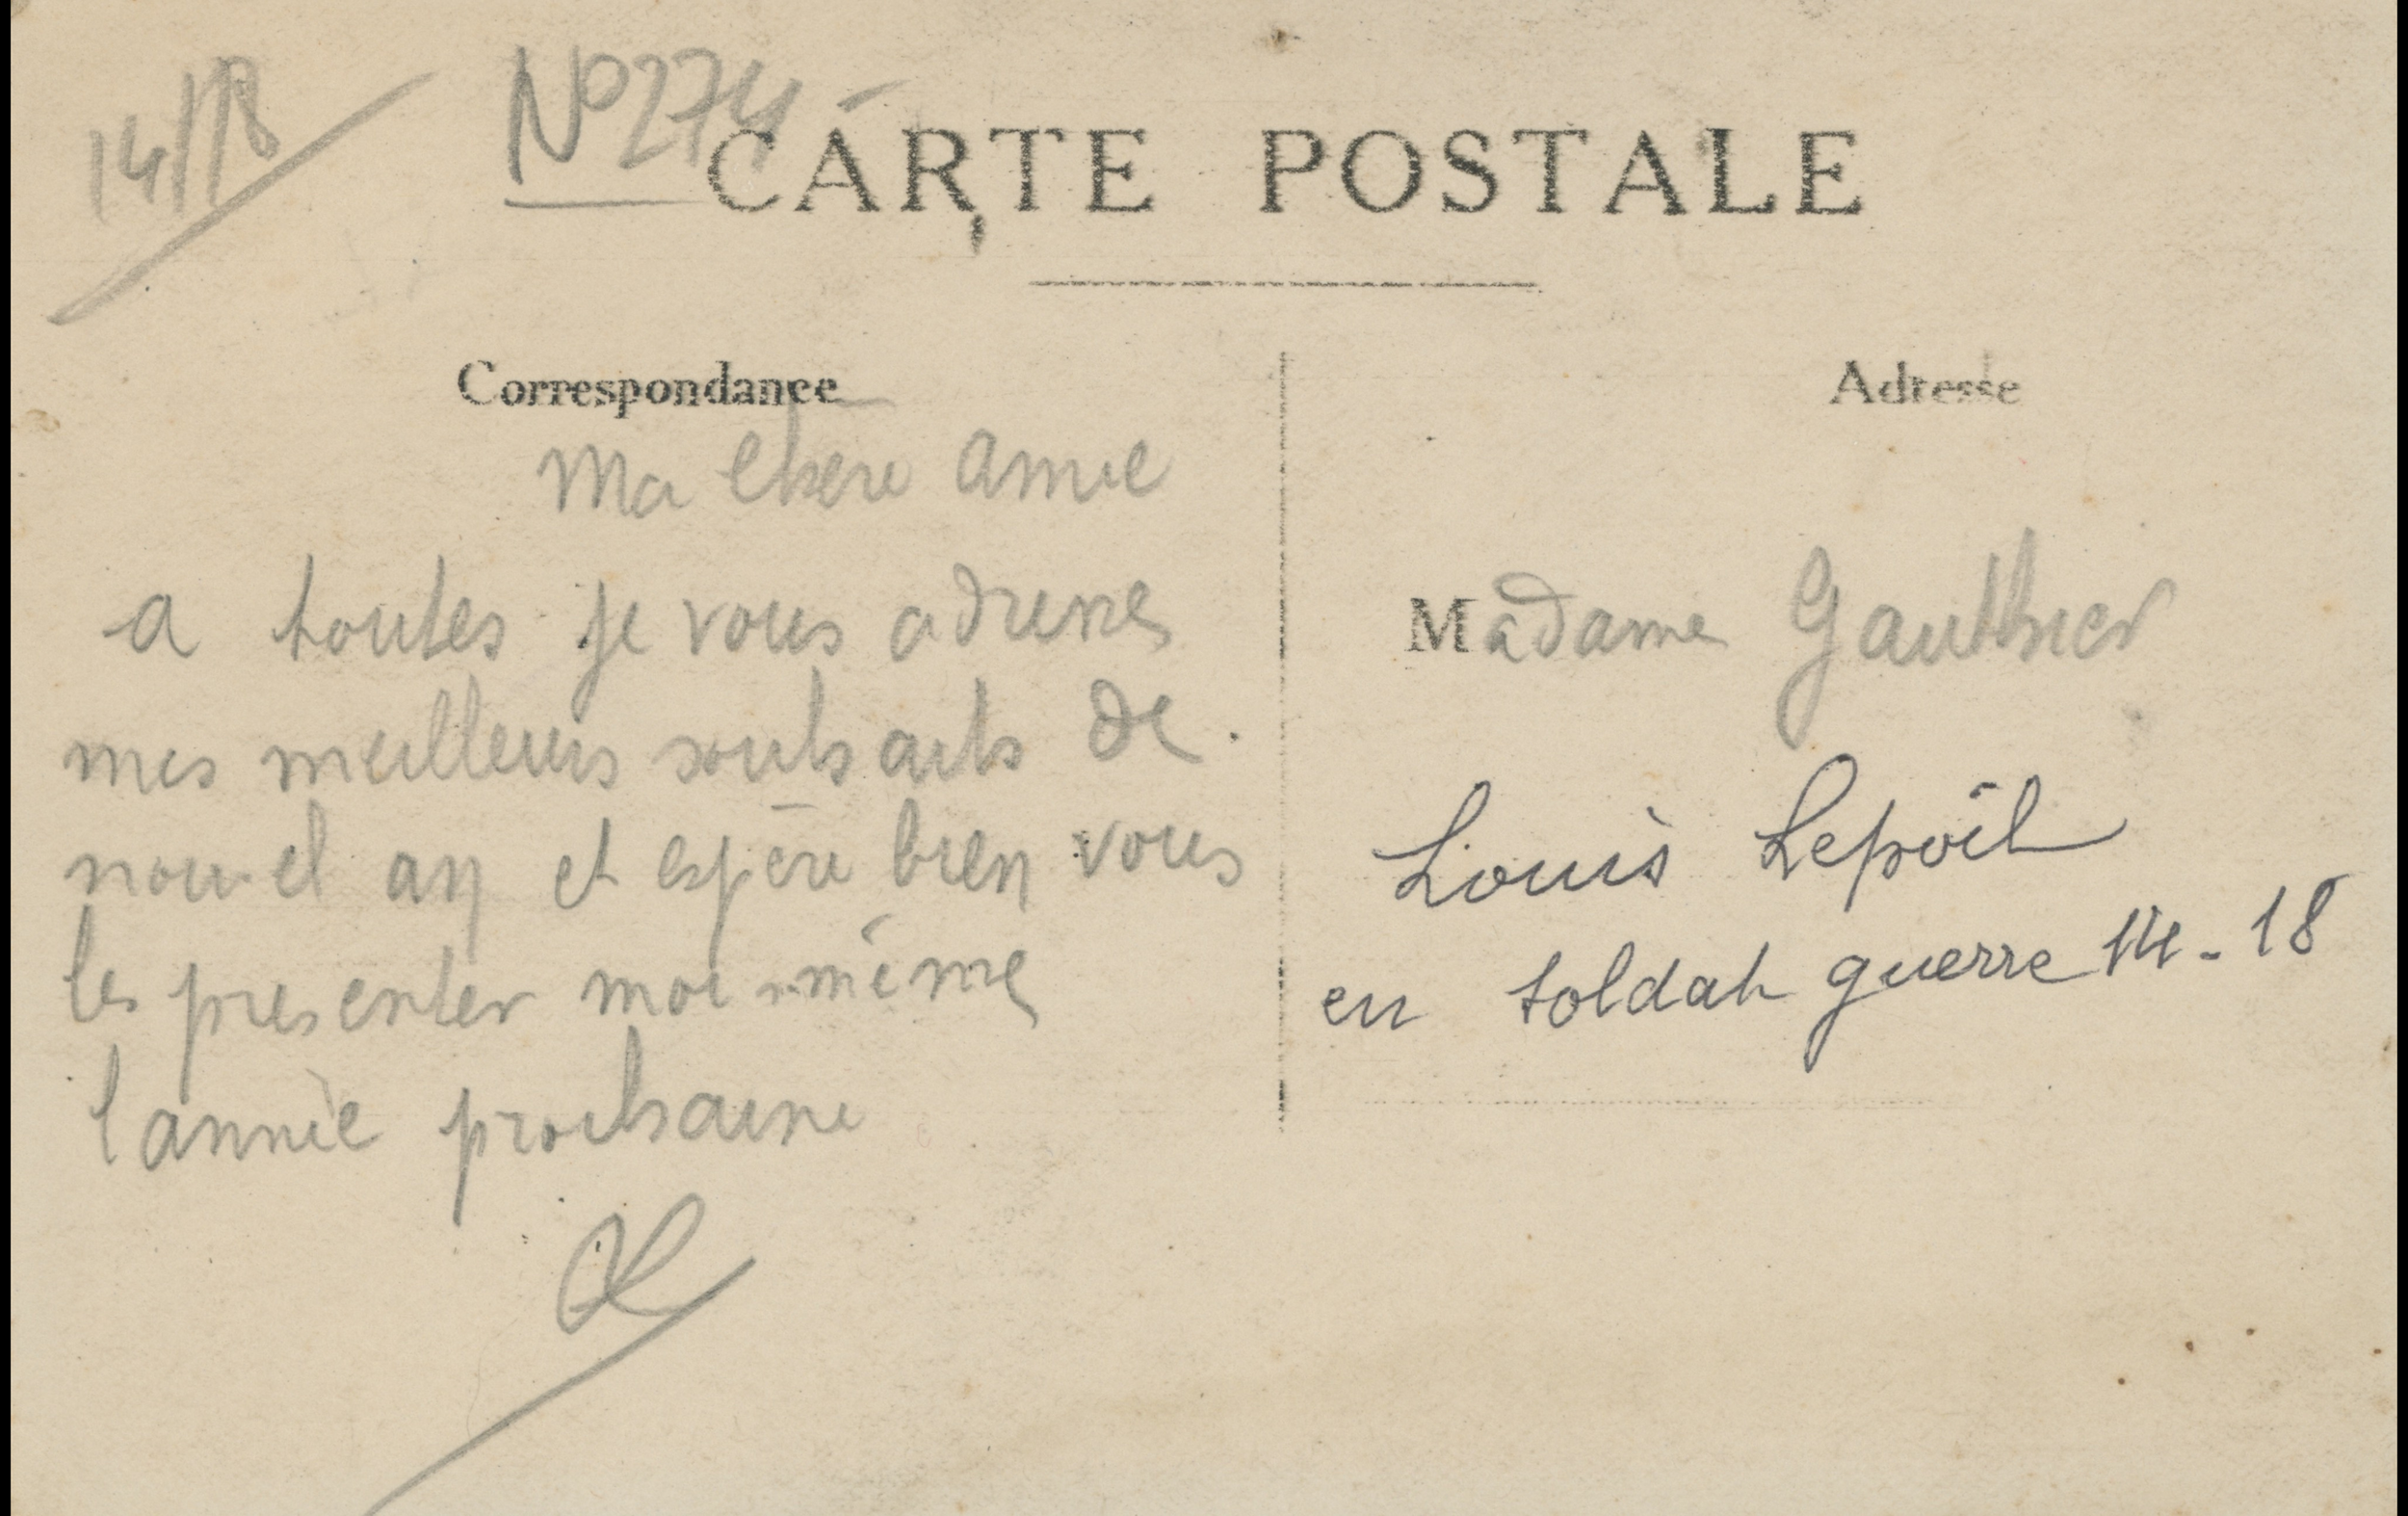 14/18
N° 274
CARTE POSTALE
Correspondance
Ma chère amie
a toutes je vous adresse
mes meilleurs souhaits de
nouvel an et espère bien vous
les presenter moi-même
l'année prochaine
Adresse
Madame Gauthier
Louis Lepoil
en soldat guerre 14-18